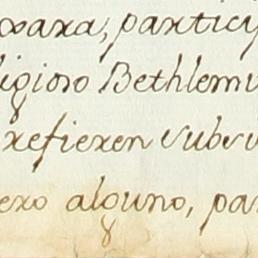 para, particip
ligioso Bethlemi
refieren subsi
ero alguno, par